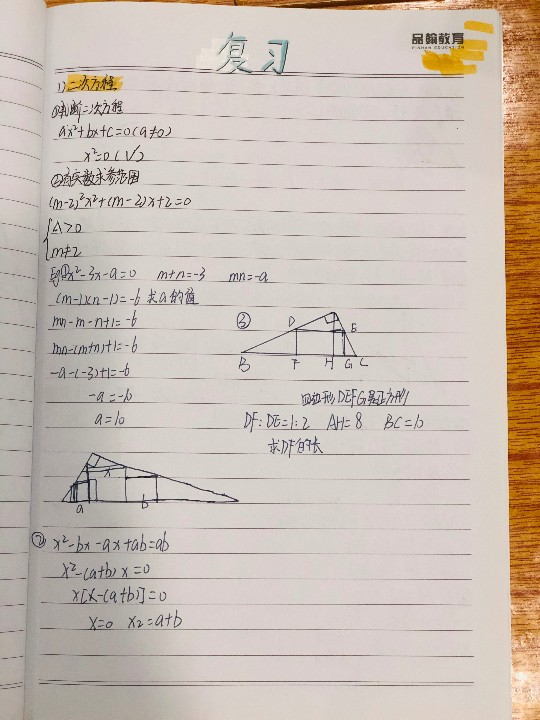 品翰教育
PINHAN EDUCATION
复习
1) 二次方程
①判断二次方程
ax²+bx+c=0(a≠0)
x²=0(√)
②有实数求参范围
(m-2)²x²+(m-2)x+2=0
Δ>0
m≠2
Eg① x²-3x-a=0 m+n=-3 mn=-a
(m-1)(n-1)=-6 求a的值
mn-m-n+1=-6
mn-(m+n)+1=-6
-a-(-3)+1=-6
-a=-6
a=10
③
D E
B F H G C
四边形DEFG是正方形
DF:DE=1:2 AH=8 BC=10
求DF的长
x
a b
② x²-bx-ax+ab=ab
x²-(a+b)x=0
x[x-(a+b)]=0
x=0 x2=a+b